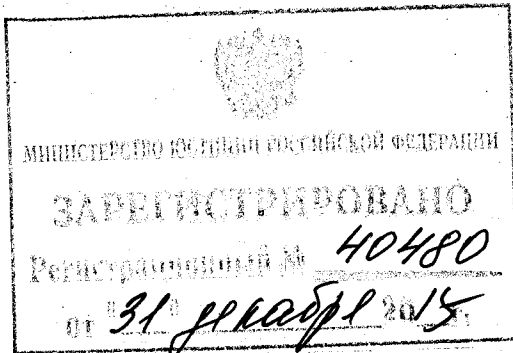 МИНИСТЕРСТВО ЮСТИЦИИ РОССИЙСКОЙ ФЕДЕРАЦИИ
ЗАРЕГИСТРИРОВАНО
Регистрационный № 40480
от "31" декабря 2015г.